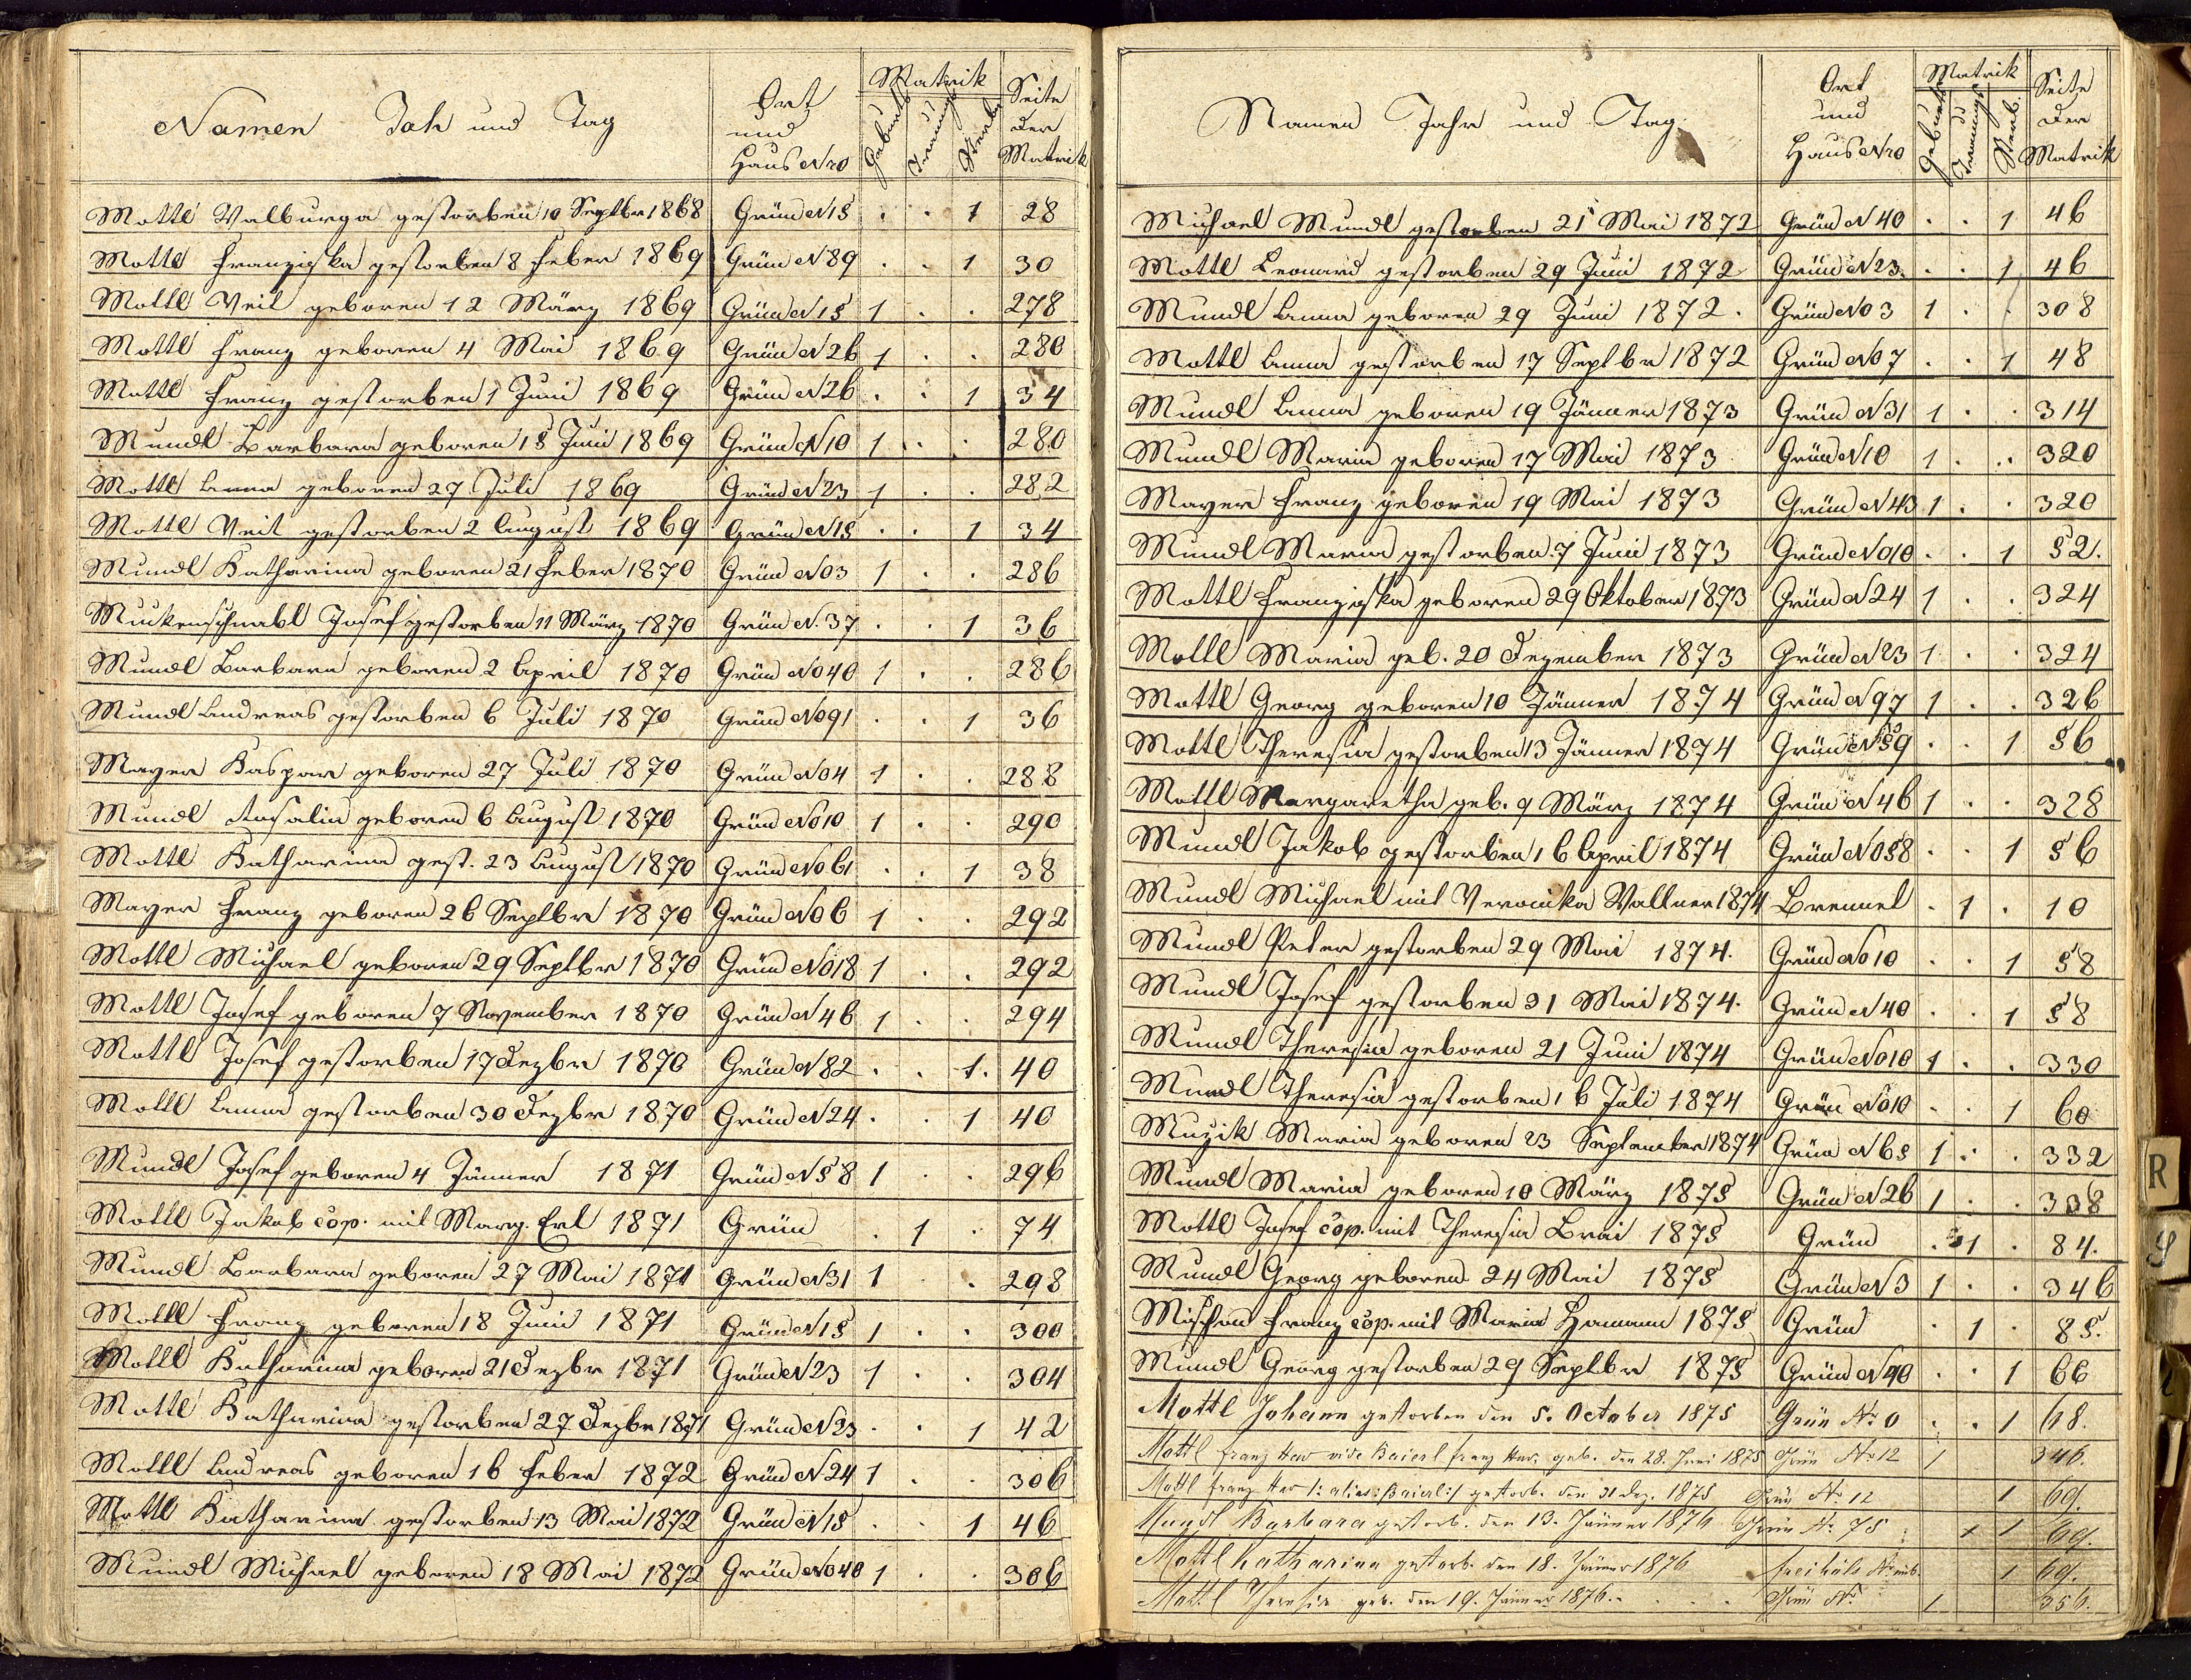 Namen Jahr und Tag
Ort und Haus Nro
Matrik
Geburts Trauungs Sterbe
Seite der Matrik
Mottl Walburga gestorben 10 Septbr 1868 Grün N 15 . . 1 28
Mottl Franziska gestorben 8 Feber 1869 Grün N 89 . . 1 30
Mottl Veit geboren 12 März 1869 Grün N 15 1 . . 278
Mottl Franz geboren 4 Mai 1869 Grün N 26 1 . . 280
Mottl Franz gestorben 1 Juni 1869 Grün N 26 . . 1 34
Mundl Barbara geboren 15 Juni 1869 Grün N 10 1 . . 280
Mottl Anna geboren 27 Juli 1869 Grün N 23 1 . . 282
Mottl Veit gestorben 2 August 1869 Grün N 15 . . 1 34
Mundl Katharina geboren 21 Feber 1870 Grün No 3 1 . . 286
Muckenschnabl Josef gestorben 11 März 1870 Grün N. 37 . . 1 36
Mundl Barbara geboren 2 April 1870 Grün No 40 1 . . 286
Mundl Andreas gestorben 6 Juli 1870 Grün No 91 . . 1 36
Mayer Kaspar geboren 27 Juli 1870 Grün No 4 1 . . 288
Mundl Rosalia geboren 6 August 1870 Grün No 10 1 . . 290
Mottl Katharina gest. 23 August 1870 Grün No 61 . . 1 38
Mayer Franz geboren 26 Septbr 1870 Grün No 6 1 . . 292
Mottl Michael geboren 29 Septbr 1870 Grün No 18 1 . . 292
Mottl Josef geboren 7 November 1870 Grün N 46 1 . . 294
Mottl Josef gestorben 17 Dezbr 1870 Grün N 82 . . 1. 40
Mottl Anna gestorben 30 Dezbr 1870 Grün N 24 . . 1 40
Mundl Josef geboren 4 Jänner 1871 Grün N 58 1 . 296
Mottl Jakob cop. mit Marg. Erl 1871 Grün . 1 . 74
Mundl Barbara geboren 27 Mai 1871 Grün N 31 1 . 298
Mottl Franz geboren 18 Juni 1871 Grün N 15 1 . . 300
Mottl Katharina geboren 21 Dezbr 1871 Grün N 23 1 . . 304
Mottl Katharina gestorben 27 Dezbr 1871 Grün N 23 . . 1 42
Mottl Andreas geboren 16 Feber 1872 Grün N 24 1 . . 306
Mottl Katharina gestorben 13 Mai 1872 Grün N 15 . . 1 46
Mundl Michael geboren 18 Mai 1872 Grün No 40 1 . . 306
Namen Jahr und Tag
Ort und Haus Nro
Matrik
Geburts Trauungs Sterb.
Seite der Matrik
Michael Mundl gestorben 21 Mai 1872 Grün N 40 . . 1 46
Mottl Leonard gestorben 29 Juni 1872 Grün N 23. . . 1 46
Mundl Anna geboren 29 Juni 1872. Grün No 3 1 . . 308
Mottl Anna gestorben 17 Septbr 1872 Grün No 7 . . 1 48
Mundl Anna geboren 19 Jänner 1873 Grün N 31 1 . . 314
Mundl Maria geboren 17 Mai 1873 Grün N 10 1 . . 320
Mayer Franz geboren 19 Mai 1873 Grün N 43 1 . . 320
Mundl Maria gestorben 7 Juni 1873 Grün No 10 . . 1 52.
Mottl Franziska geboren 29 Oktober 1873 Grün N 24 1 . . 324
Mottl Maria geb. 20 Dezember 1873 Grün N 23 1 . . 324
Mottl Georg geboren 10 Jänner 1874 Grün N 97 1 . . 326
Mottl Theresia gestorben 13 Jänner 1874 Grün N 59 . . 1 56
Mottl Margaretha geb. 9 März 1874 Grün N 46 1 . . 328
Mundl Jakob gestorben 16 April 1874 Grün No 58 . . 1 56
Mundl Michael mit Veronika Wallner 1874 Brennet . 1 . 10
Mundl Peter gestorben 29 Mai 1874. Grün No 10 . . 1 58
Mundl Josef gestorben 31 Mai 1874. Grün N 40 . . 1 58
Mundl Theresia geboren 21 Juni 1874 Grün No 10 1 . . 330
Mundl Theresia gestorben 16 Juli 1874 Grün No 10 . . 1 60
Muzik Maria geboren 23 September 1874 Grün N 65 1 . . 332
Mundl Maria geboren 10 März 1875 Grün N 26 1 . . 338
Mottl Josef cop. mit Theresia Brai 1875 Grün . 1 . 84.
Mundl Georg geboren 24 Mai 1875 Grün N 3 1 . . 346
Mischon Franz cop. mit Maria Hamann 1875 Grün . 1 . 85.
Mundl Georg gestorben 29 Septbr 1875 Grün N 40 . . 1 66
Mottl Johann gestorben den 5. October 1875 Grün No 0 . . 1 68.
Mottl Franz Xav vide Baierl Franz Xav. geb. den 28. Juni 1875 Grün No 12 1 346.
Mottl Franz Xav /: alias: Baierl :/ gestorb. den 31 Dez. 1875 Grün No 12 1 69.
Mundl Barbara gestorb. den 13. Jänner 1876 Grün No 75 1 1 69.
Mottl Katharina gestorb. den 18. Jänner 1876 1 69.
Mottl Theresia geb. den 19. Jänner 1876. Grün No 1 356.
R
S